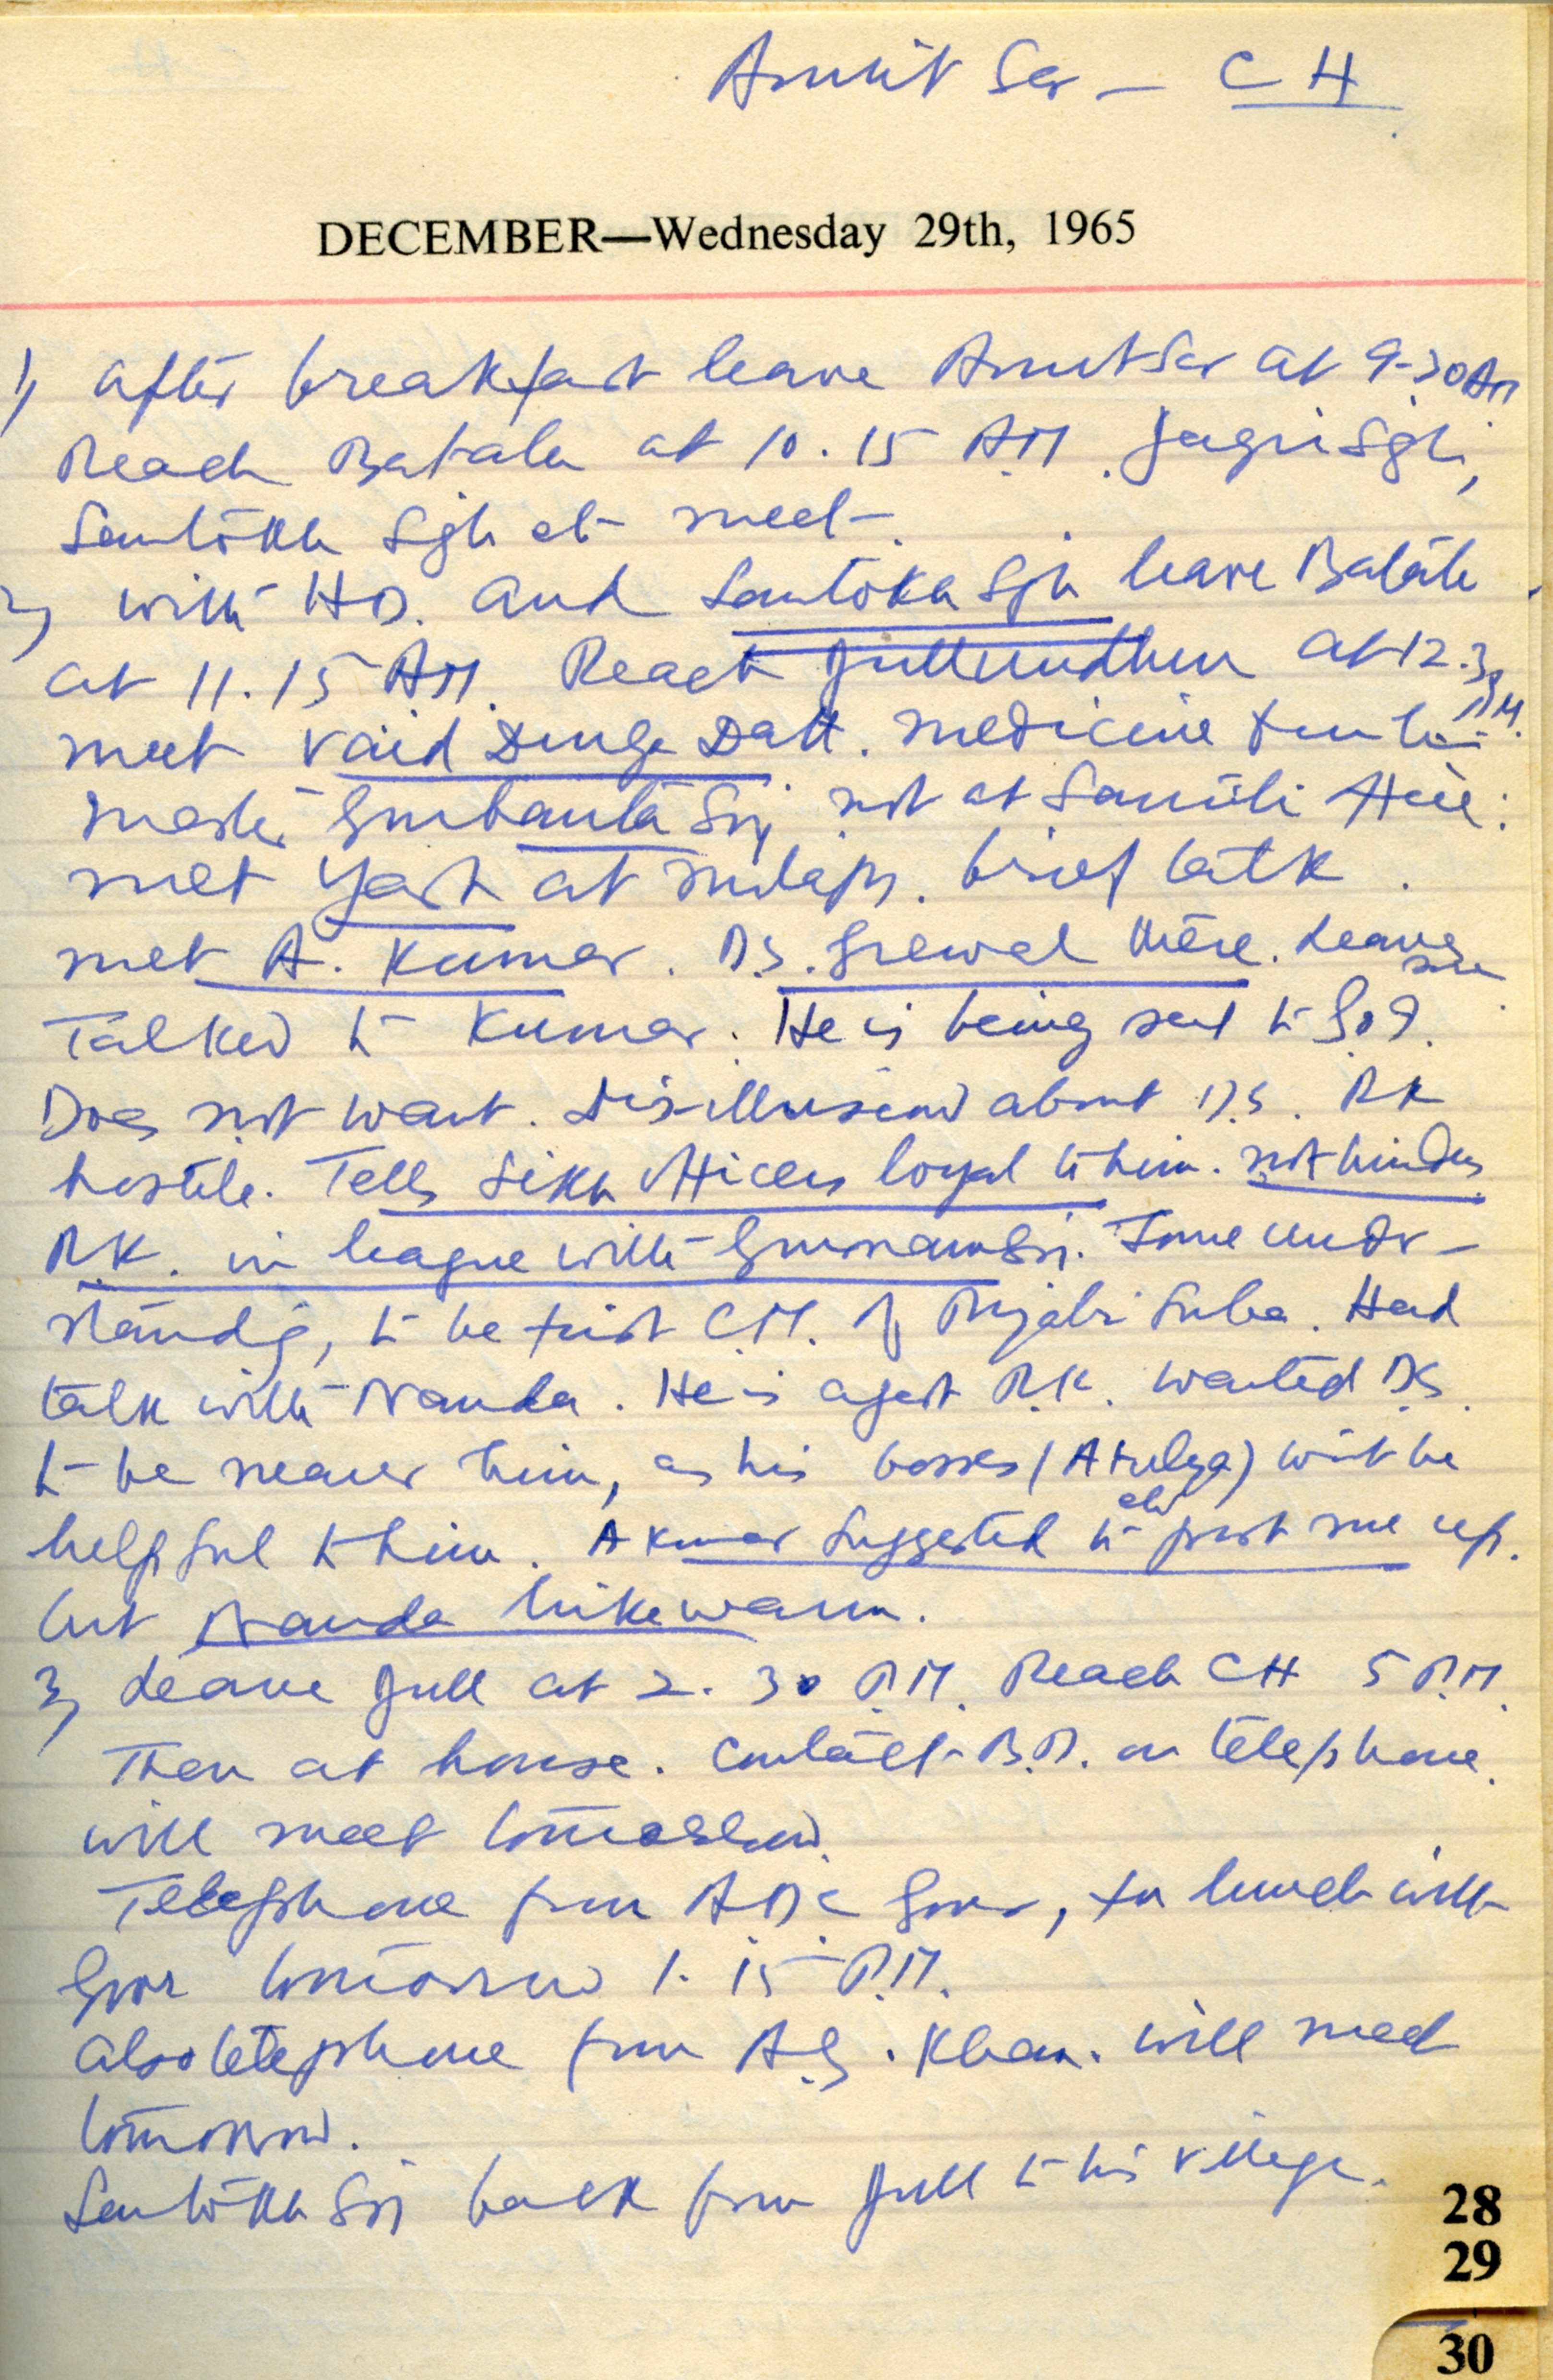 Amrit Sar — CH
DECEMBER—Wednesday 29th, 1965
1) After breakfast leave AmritSar at 9-30 AM
Reach Batala at 10.15 AM. Jagir Sgh,
Santokh Sgh etc meet.
2) with HD. and Santokh Sgh leave Batala
at 11.15 AM. Reach Jullundhur at 12.30 PM.
meet Vaid Durga Datt. medicine for
Master Gurbanta Sgh not at Samiti Here.
met Yash at Milap. brief talk.
met A. Kumar. D.S. Grewal there. Leaves
soon
Talked to Kumar. He is being sent to
Does not want. Dis-illusioned about D.S. RK
hostile. Tells Sikh officers loyal to him. not hindus
R.K. in league with Gurnam Sgh. Some under-
standg, to be first C.M. of Punjabi Suba. Had
talk with Nanda. He is agst R.K. wanted DS
to be nearer him, as his bosses (Atulya) will be
helpful to him. A Kumar suggested to prop me up.
but Nanda lukewarm.
3) Leave Jull at 2.30 P.M. Reach CH 5 P.M.
Then at house. Contact B.D. on telephone.
will meet tomorrow.
Telephone from ADC Govr, for lunch with
Govr tomorrow 1.15 P.M.
Also telephone from A.G. Khan. will meet
tomorrow.
Santokh Sgh back from Jull to his village.
28
29
30